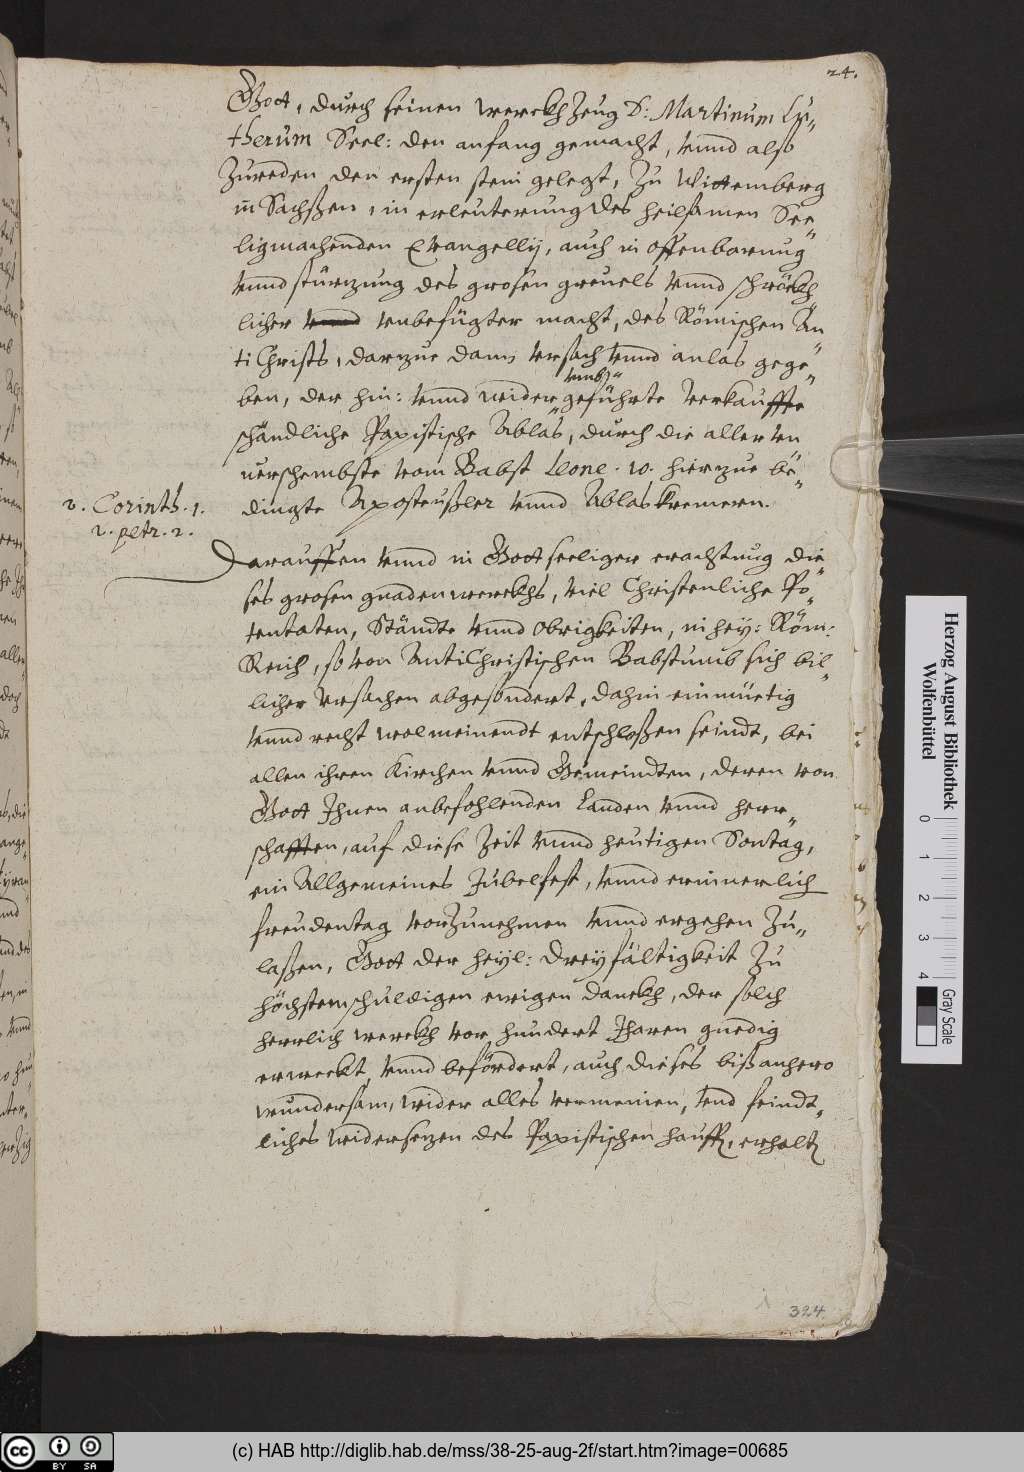 24.
Gott, durch seinen werckhzeug D: Martinum Lu„
therum Seel: den anfang gemacht, vnnd also
Zureden den ersten stein gelegt, Zu Wittemberg
in Sachßen, in erleuterung des heilsamen See„
ligmachenden Evangellij, auch in offenbarung
vnnd stürtzung des grosen greuels vnnd schröckh„
licher vnnd vnbefügter macht, des Römischen An„
ti Christs, darzue dann vrsach vnnd anlas gege„
ben, der hin: vnnd wider geführte verkauffte
vmb„
schändliche Papistische Ablas, durch die aller vn„
verschembste vom Babst Leone .10. hierzue be„
dingte Aposteußler vnnd Ablaskremern.
2. Corinth. 1.
2. petr. 2.
Darauffen vnnd in Gottseeliger erachtung die„
ses grosen gnadenwerckhs, viel Christenliche Po„
tentaten, Ständte vnnd Obrigkeiten, in hey: Röm:
Reich, so von AntiChristischen Babstumb sich bil„
licher vrsachen abgesöndert, dahin einmüetig
vnnd recht wolmeinendt entschloßen seindt, bei
allen ihren Kirchen vnnd Gemeindten, deren von
Gott Ihnen anbefohlenden Landen vnnd herr„
schafften, auf diese Zeit vnnd heutigen Sontag,
ein Allgemeines Jubelfest, vnnd erinnerlich
freudentag vorZunehmen vnnd ergehen Zu„
laßen, Gott der heyl: Dreyfältigkeit Zu
höchstemschuldigen ewigen danckh, der solch
herrlich werckh vor hundert Jharen gnedig
erweckt, vnnd befördert, auch dieses biß anhero
wundersam, wider alles vermeinen, vnd feindt„
liches widersetzen des Papistischen hauffens, erhalten
324.
Herzog August Bibliothek
Wolfenbüttel
0 1 2 3 4
Gray Scale
cc BY SA
(c) HAB http://diglib.hab.de/mss/38-25-aug-2f/start.htm?image=00685